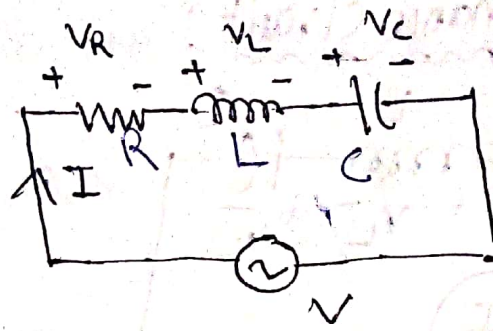 VR VL VC
+ - + - + -
R L C
I
V